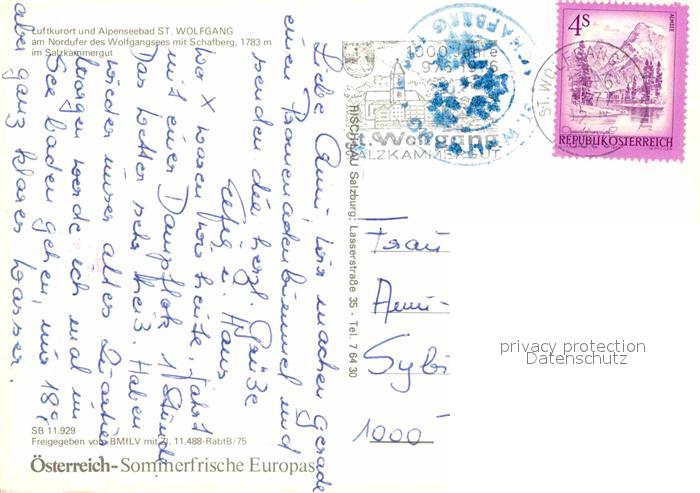 Luftkurort und Alpenseebad ST. WOLFGANG
am Nordufer des Wolfgangsees mit Schafberg, 1783 m
im Salzkammergut
Liebe Anni, wir machen gerade
einen Promenadenbummel und
senden dir herzl. Grüße
u. Hans
wo x waren wir heute. Fahrt
mit einer Dampflok 1 Stunde
Das Wetter sehr heiß. Haben
wieder unser altes Quartier
Morgen werde ich mal im
See baden gehen, nur 18°
aber ganz klares Wasser.
SB 11.929
Freigegeben vom BMfLV mit Zl. 11.488-RabtB/75
Österreich-Sommerfrische Europas
RISCHGAU Salzburg: Lasserstraße 35 - Tel. 7 64 30
1000 Jahre
976-1976
St. Wolfgang
SALZKAMMERGUT
SCHAFBERG
ST. WOLFGANG
4S
ALMSEE
REPUBLIK ÖSTERREICH
Frau
Anni
Sybi
1000
privacy protection
Datenschutz